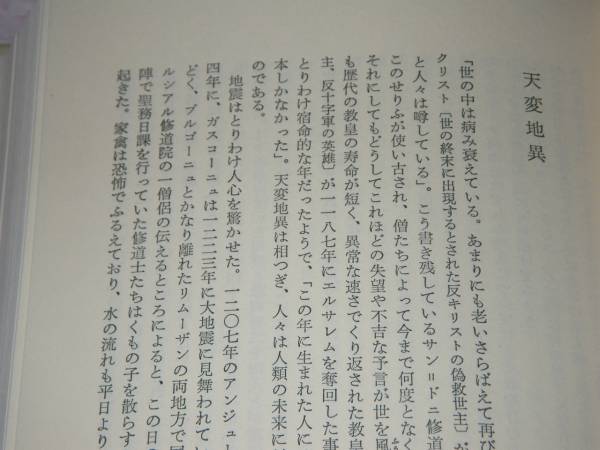 天変地異
「世の中は病み衰えている。あまりにも老いさらばえて再び
クリスト〔世の終末に出現するとされた反キリストの偽救世主〕が
と人々は噂している」。こう書き残しているサン＝ドニ修道
このせりふが使い古され、僧たちによって今まで何度となく
それにしてもどうしてこれほどの失望や不吉な予言が世を風
も歴代の教皇の寿命が短く、異常な速さでくり返された教皇
主、反十字軍の英雄〕が一一八七年にエルサレムを奪回した事
とりわけ宿命的な年だったようで、「この年に生まれた人に
本しかなかった」。天変地異は相つぎ、人々は人類の未来に
のである。
地震はとりわけ人心を驚かせた。一二〇七年のアンジュー
四年に、ガスコーニュは一二二三年に大地震に見舞われてい
どく、ブルゴーニュとかなり離れたリムーザンの両地方で同
ルシアル修道院の一僧侶の伝えるところによると、この日の
陣で聖務日課を行っていた修道士たちはくもの子を散らす
起きた。家禽は恐怖でふるえており、水の流れも平日より